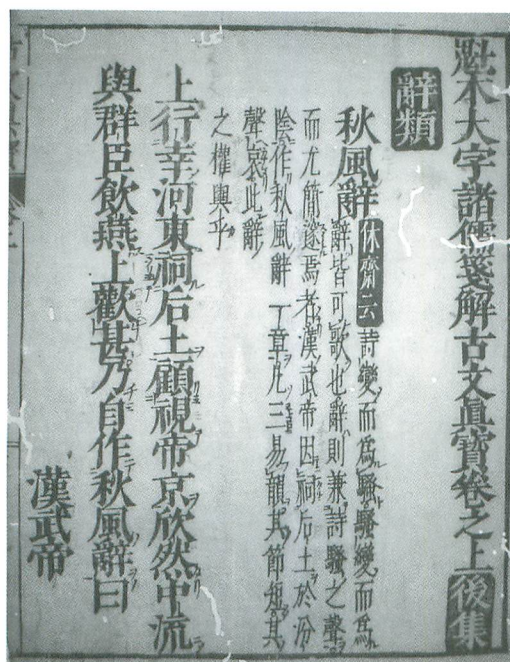 魁本大字諸儒箋解古文眞寳卷之上 後集
辭類
秋風辭 休齋云 詩變而爲騷騷變而爲
辭皆可歌也辭則兼詩騷之聲
而尤簡邃焉者漢武帝因祠后土於汾
陰作秋風辭一章凡三易韻其節短其
聲哀此辭
之權輿乎
上行幸河東祠后土顧視帝京欣然中流
與群臣飲燕上歡甚乃自作秋風辭曰
漢武帝